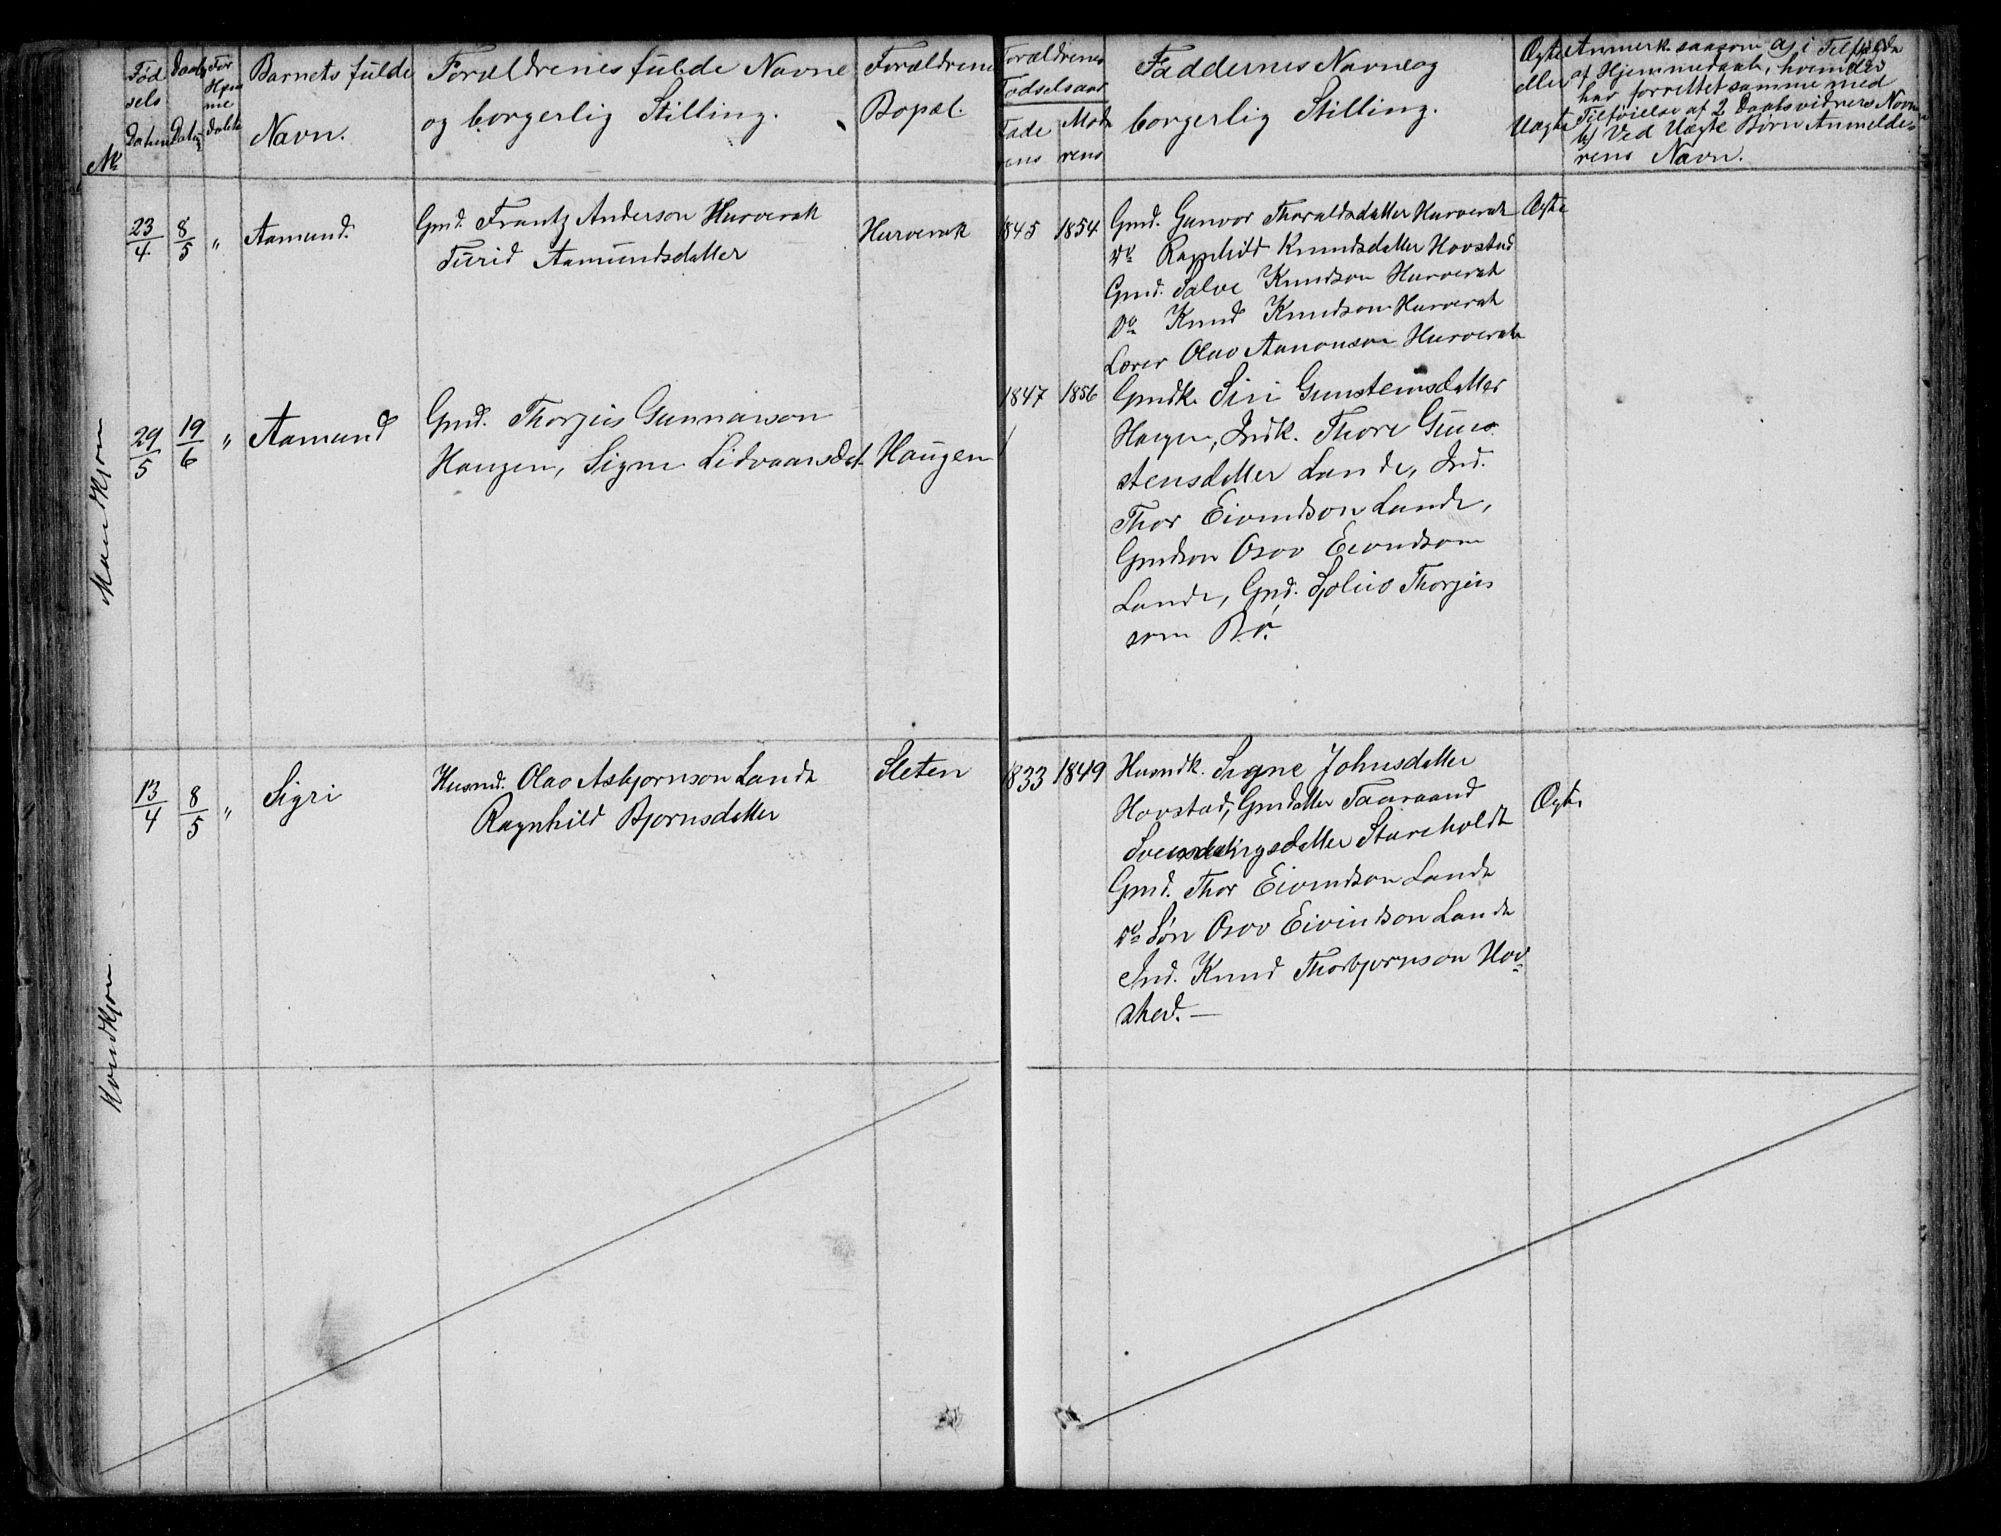 No
Fød
sels
Datum
Daabs
Datum
For
Hjem
me
døbte
Barnets fulde
Navn.
Forældrenes fulde Navne
og borgerlig Stilling.
Forældrenes
Bopæl.
Forældrenes
Fødselsaar
Fade
rens
Mod
rens
Faddernes Navne og
borgerlig Stilling.
Ægte
eller
Uægte
Anmerk. saasom a) i Tilfælde
af Hjemmedaab, hvem der
har forrettet samme med
Tilføielse af 2 Daabsvidners Navne
b) Ved Uægte Børn Anmelde-
rens Navn.
Mandkjøn
23/4
8/5
"
Aamund.
Gmd. Frantz Anderson Hurverak
Turid Aamundsdatter
Hurverak
1845
1854
Gmd. Gunvor Thoraldsdatter Hurverak
Do Ragnhild Knudsdatter Hovstad
Gmd. Salve Knudson Hurverak
Do Knud Knudson Hurverak
Lærer Olav Aanonson Hurverak
Ægte
29/5
19/6
"
Aamund
Gmd. Thorjus Gunnarson
Haugen, Signe Lidvaarsdat.
Haugen
1847
1856
Gmdk. Siri Gunsteinsdatter
Haugen, Indk. Thore Gun-
stensdatter Lande, Ind.
Thor Eivindson Lande,
Gmdson Osov Eivindson
Lande, Gmd. Thorjus
son Bø.
Kvindkjøn.
13/4
8/5
"
Sigri
Husmd. Olav Asbjornson Lande
Ragnhild Bjornsdatter
Sleten
1833
1849
Husmdk. Signe Johnsdatter
Hovstad, Gmdatter Taaraand
Stureholdt
Gmd. Thor Eivindson Lande
Do Søn Osov Eivindson Lande
Ind. Knud Thorbjornson Hov-
sted. —
Ægte